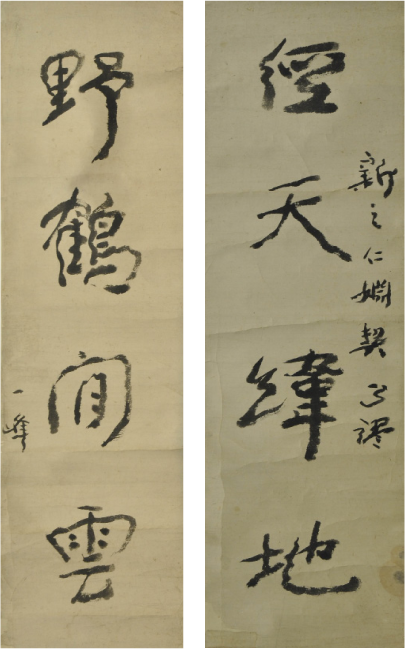 經天緯地
新之仁嫻契正謬
野鶴间雲
一峰